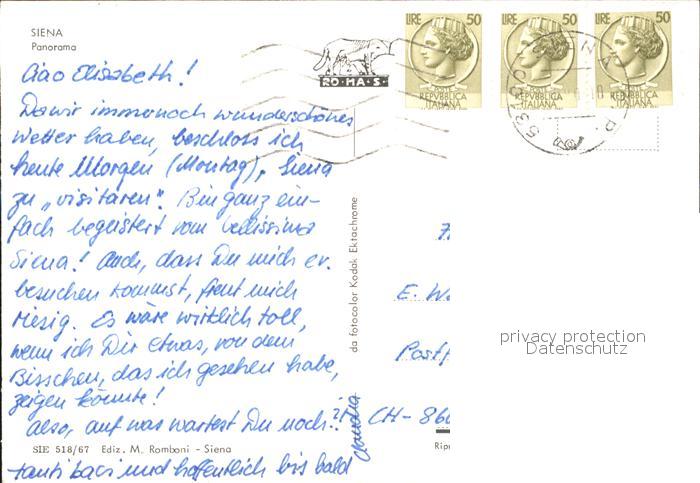 SIENA
Panorama
LIRE 50
LIRE 50
LIRE 50
REPVBBLICA
ITALIANA
REPVBBLICA
ITALIANA
REPVBBLICA
ITALIANA
RO·MA·S·
Ciao Elisabeth!
Da wir immernoch wunderschönes
Wetter haben, beschloss ich
heute Morgen (Montag), Siena
zu „visitaren". Bin ganz ein-
fach begeistert vom bellissima
Siena! Auch, dass Du mich ev.
besuchen kommst, freut mich
riesig. Es wäre wirklich toll,
wenn ich Dir etwas, von dem
Bisschen, das ich gesehen habe,
zeigen könnte!
Also, auf was wartest Du noch..?!
SIE 518/67 Ediz. M. Romboni - Siena
tanti baci und hoffentlich bis bald
Claudia
da fotocolor Kodak Ektachrome
E. W
Postf
CH - 86
Ripr
privacy protection
Datenschutz